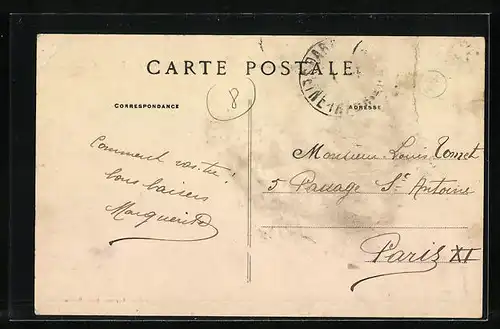 CARTE POSTALE
CORRESPONDANCE
ADRESSE
8
Comment vas-tu!
bons baisers
Marguerite
Monsieur Louis
5 Passage St Antoine
Paris XI